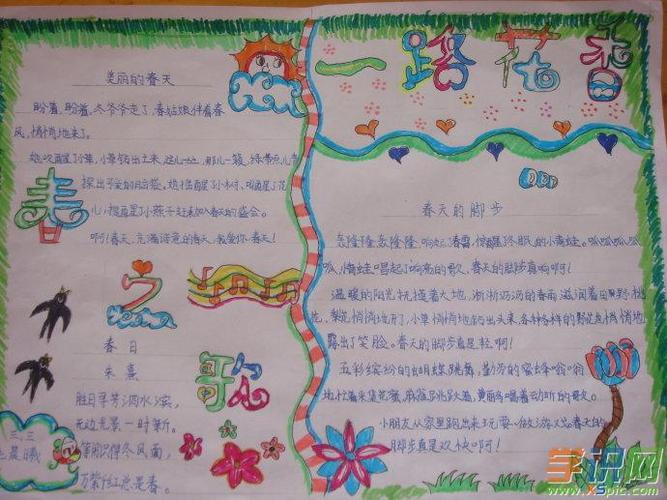 美丽的春天
盼着,盼着,冬爷爷走了,春姑娘伴着春
风,悄悄地来了。
她吹醒了小草,小草钻出土来,这儿一丛,那儿一簇,
探出可爱的小脑袋。她摇醒了小树,
她唤醒了小燕子赶来加入春天的盛会。
啊!春天,充满诗意的春天,我爱你,春天!
春
之
歌
春日
朱熹
胜日寻芳泗水滨,
无边光景一时新。
等闲识得东风面,
万紫千红总是春。
三、三
晨曦
一路花香
春天的脚步
轰隆隆轰隆隆 响起了春雷,惊醒了冬眠的小青蛙。呱呱呱,呱
呱,小青蛙唱起了响亮的歌。春天的脚步真响啊!
温暖的阳光抚摸着大地,淅淅沥沥的春雨滋润着田野,桃
花、梨花悄悄地开了,小草悄悄地钻出头来,各种各样的野花也悄悄地
露出了笑脸。春天的脚步真是轻啊!
五彩缤纷的蝴蝶跳舞,勤劳的蜜蜂嗡嗡
地忙着采集花蜜,黄鹂鸟唱着动听的歌。
小朋友从家里跑出来玩耍、做游戏。春天的
脚步真是欢快啊!
学识网
www.xspic.com